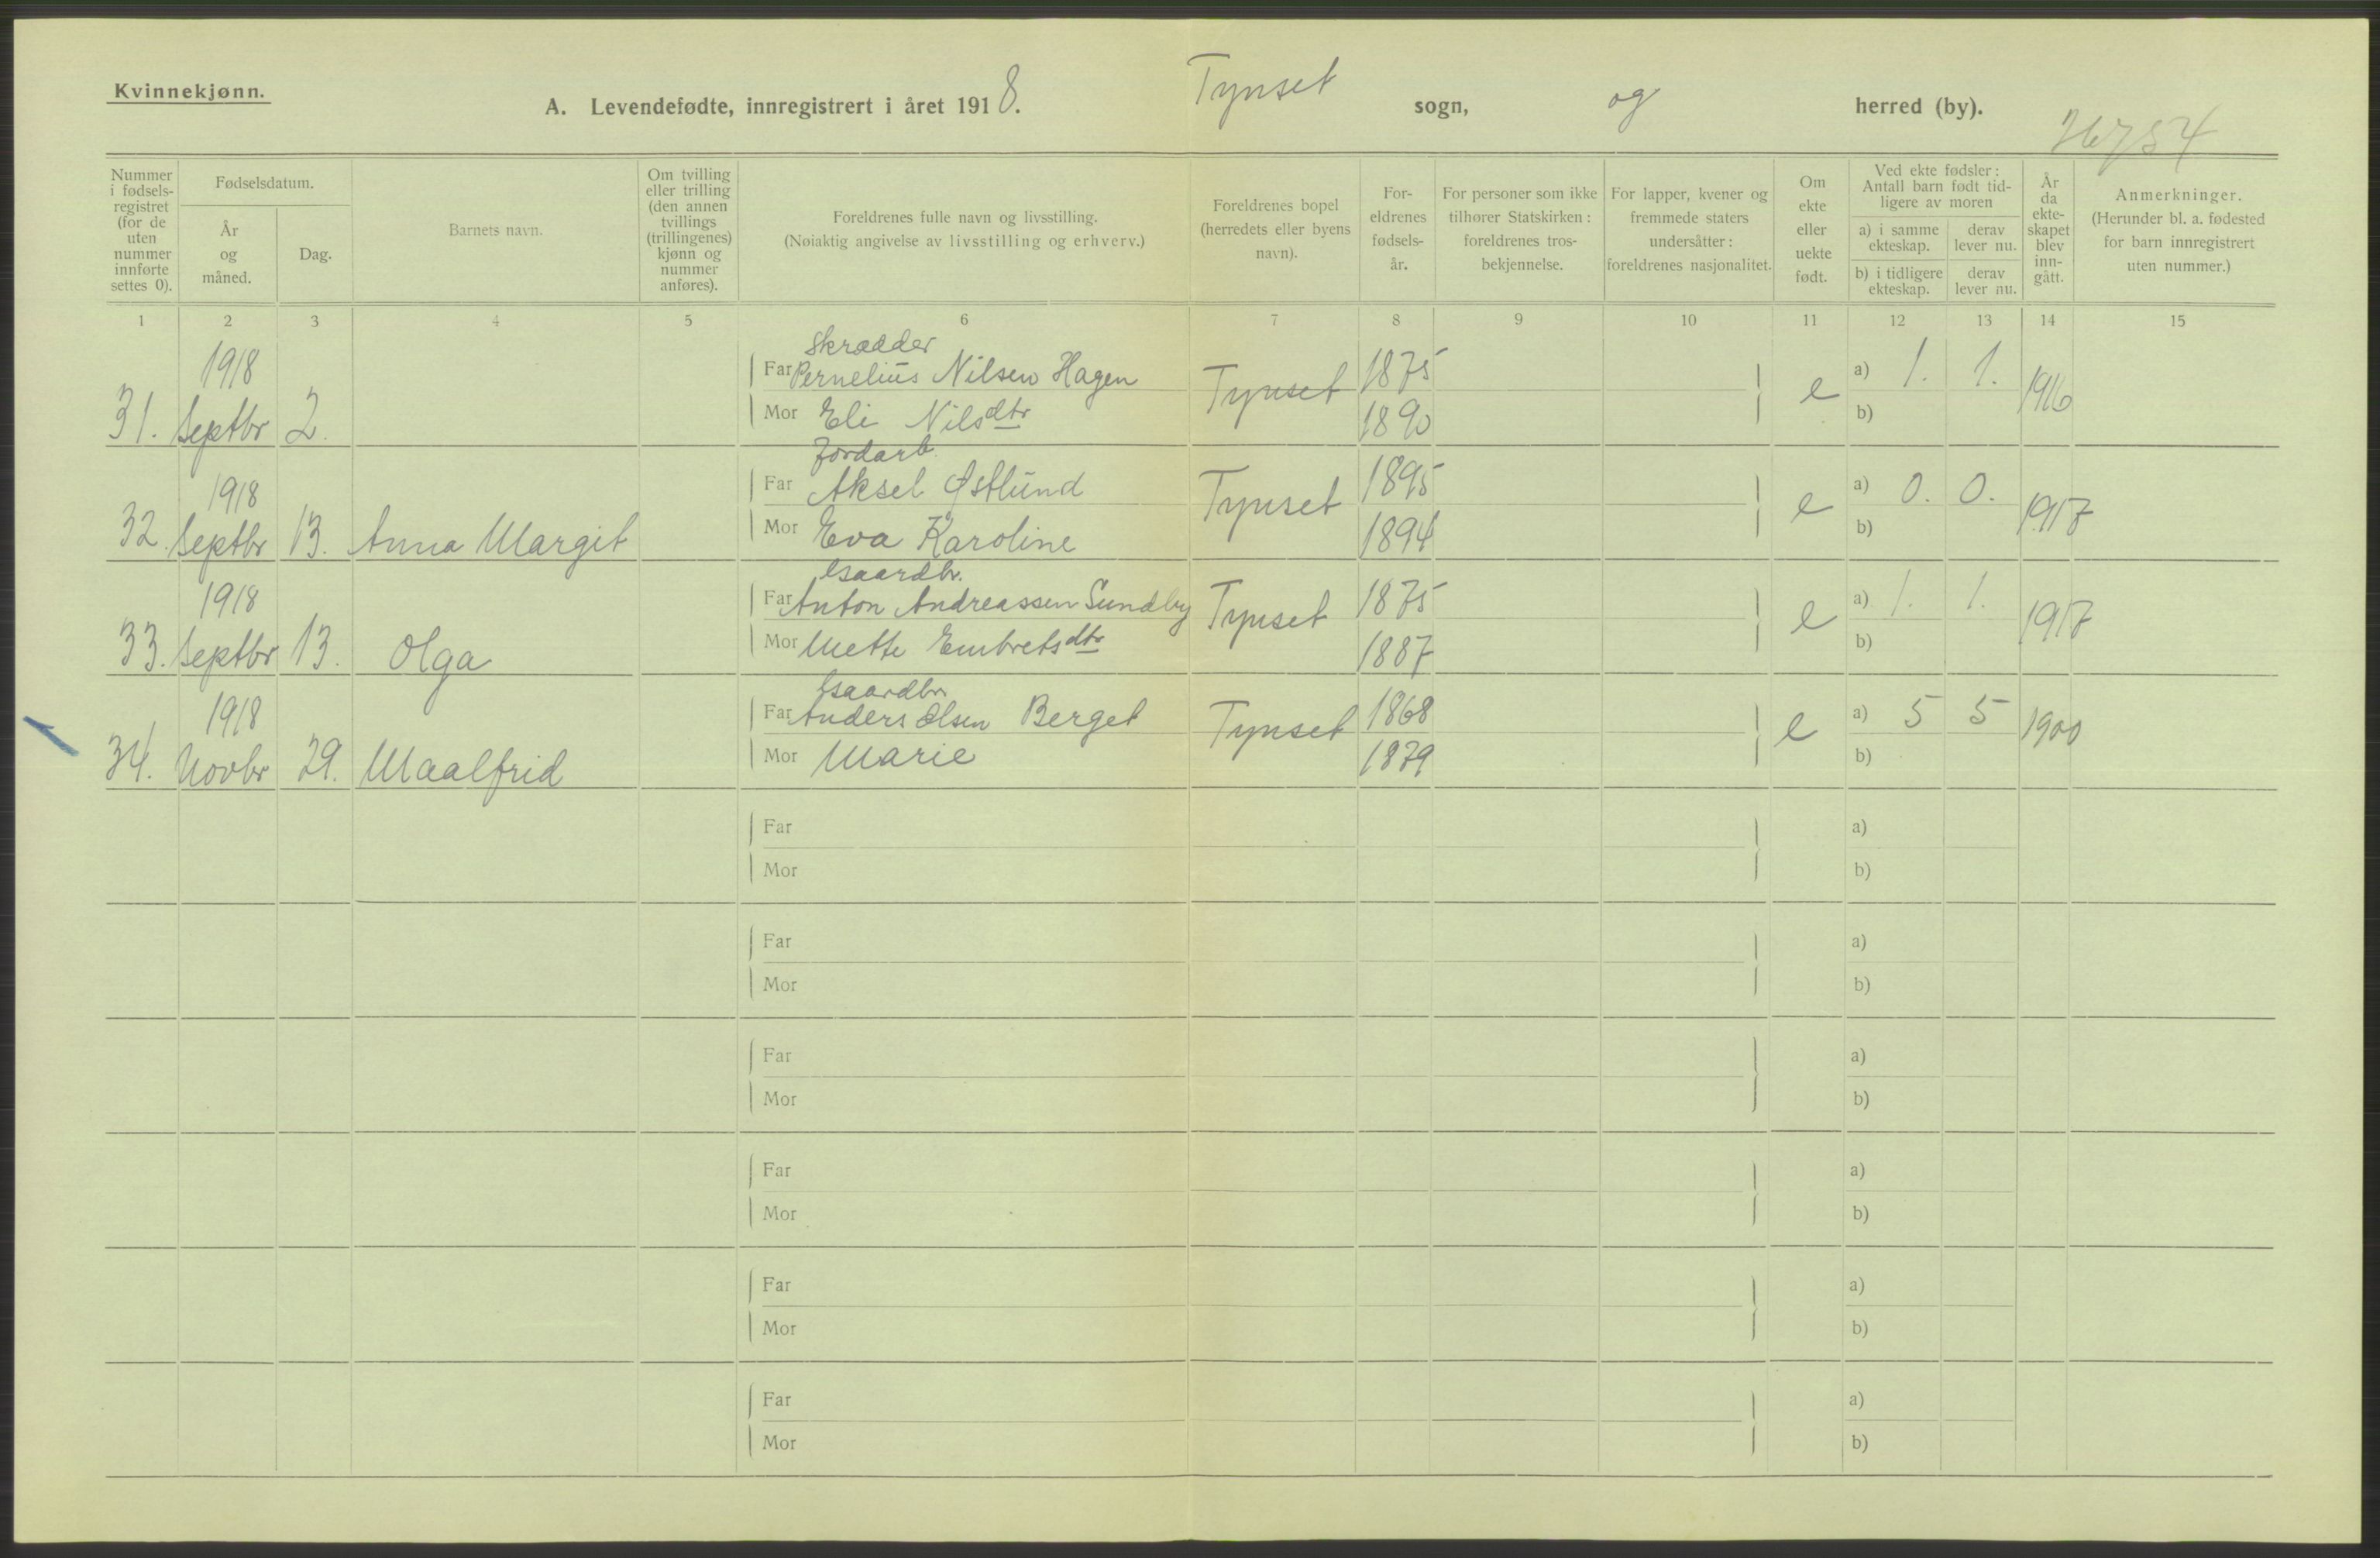 Kvinnekjønn.
A. Levendefødte, innregistrert i året 1918. Tynset sogn, og herred (by).
Nummer i fødsels-registret (for de uten nummer innførte settes 0).
Fødselsdatum.
År og måned.
Dag.
Barnets navn.
Om tvilling eller trilling (den annen tvillings (trillingenes) kjønn og nummer anføres).
Foreldrenes fulle navn og livsstilling.
(Nøiaktig angivelse av livsstilling og erhverv.)
Foreldrenes bopel (herredets eller byens navn).
For-eldrenes fødsels-år.
For personer som ikke tilhører Statskirken: foreldrenes tros-bekjennelse.
For lapper, kvener og fremmede staters undersåtter: foreldrenes nasjonalitet.
Om ekte eller uekte født.
Ved ekte fødsler: Antall barn født tid-ligere av moren
a) i samme ekteskap.
derav lever nu.
b) i tidligere ekteskap.
derav lever nu.
År da ekte-skapet blev inn-gått.
Anmerkninger.
(Herunder bl. a. fødested for barn innregistrert uten nummer.)
1 2 3 4 5 6 7 8 9 10 11 12 13 14 15
Skrædder
1918 Far Pernelius Nilsen Hagen Tynset 1875 e a) 1. 1. 1916
31. Septbr 2. Mor Eli Nilsdtr 1890 b)
Jordarb.
1918 Far Aksel Østlund Tynset 1895 e a) 0. 0. 1917
32. Septbr 13. Anna Margit Mor Eva Karoline 1894 b)
Gaardbr.
1918 Far Anton Andreassen Sundby Tynset 1875 e a) 1. 1. 1917
33. Septbr 13. Olga Mor Mette Embretsdtr 1887 b)
Gaardbr.
1918 Far Anders Olsen Berget Tynset 1868 e a) 5 5 1900
34. Novbr 29. Maalfrid Mor Marie 1879 b)
Far a)
Mor b)
Far a)
Mor b)
Far a)
Mor b)
Far a)
Mor b)
Far a)
Mor b)
Far a)
Mor b)